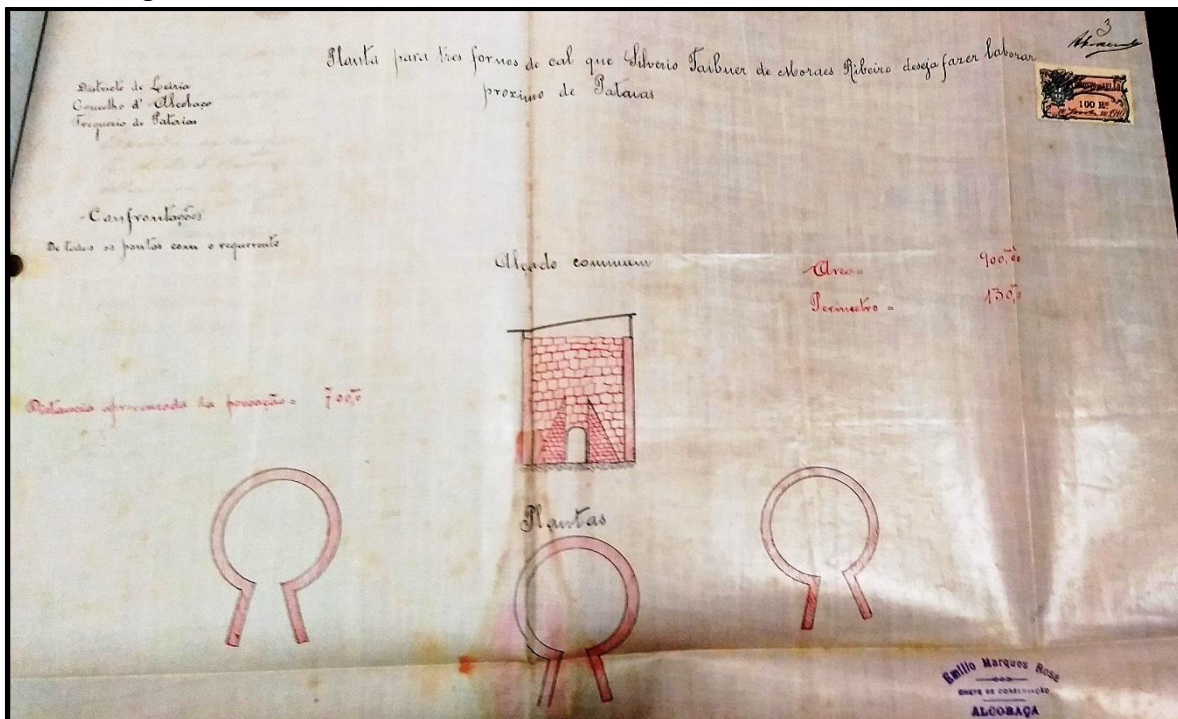 3
Planta para tres fornos de cal que Silverio Taibner de Moraes Ribeiro deseja fazer laborar
proximo de Pataias
Districto de Leiria
Concelho d'Alcobaça
Freguezia de Pataias
100 Rs
Confrontações
De todos os pontos com o requerente
Alçado commum
Area = 900,00
Perimetro = 130,0
Distancia aproximada da povoação = 700,0
Plantas
Emilio Marques Rosa
CHEFE DE CONSERVAÇÃO
ALCOBAÇA